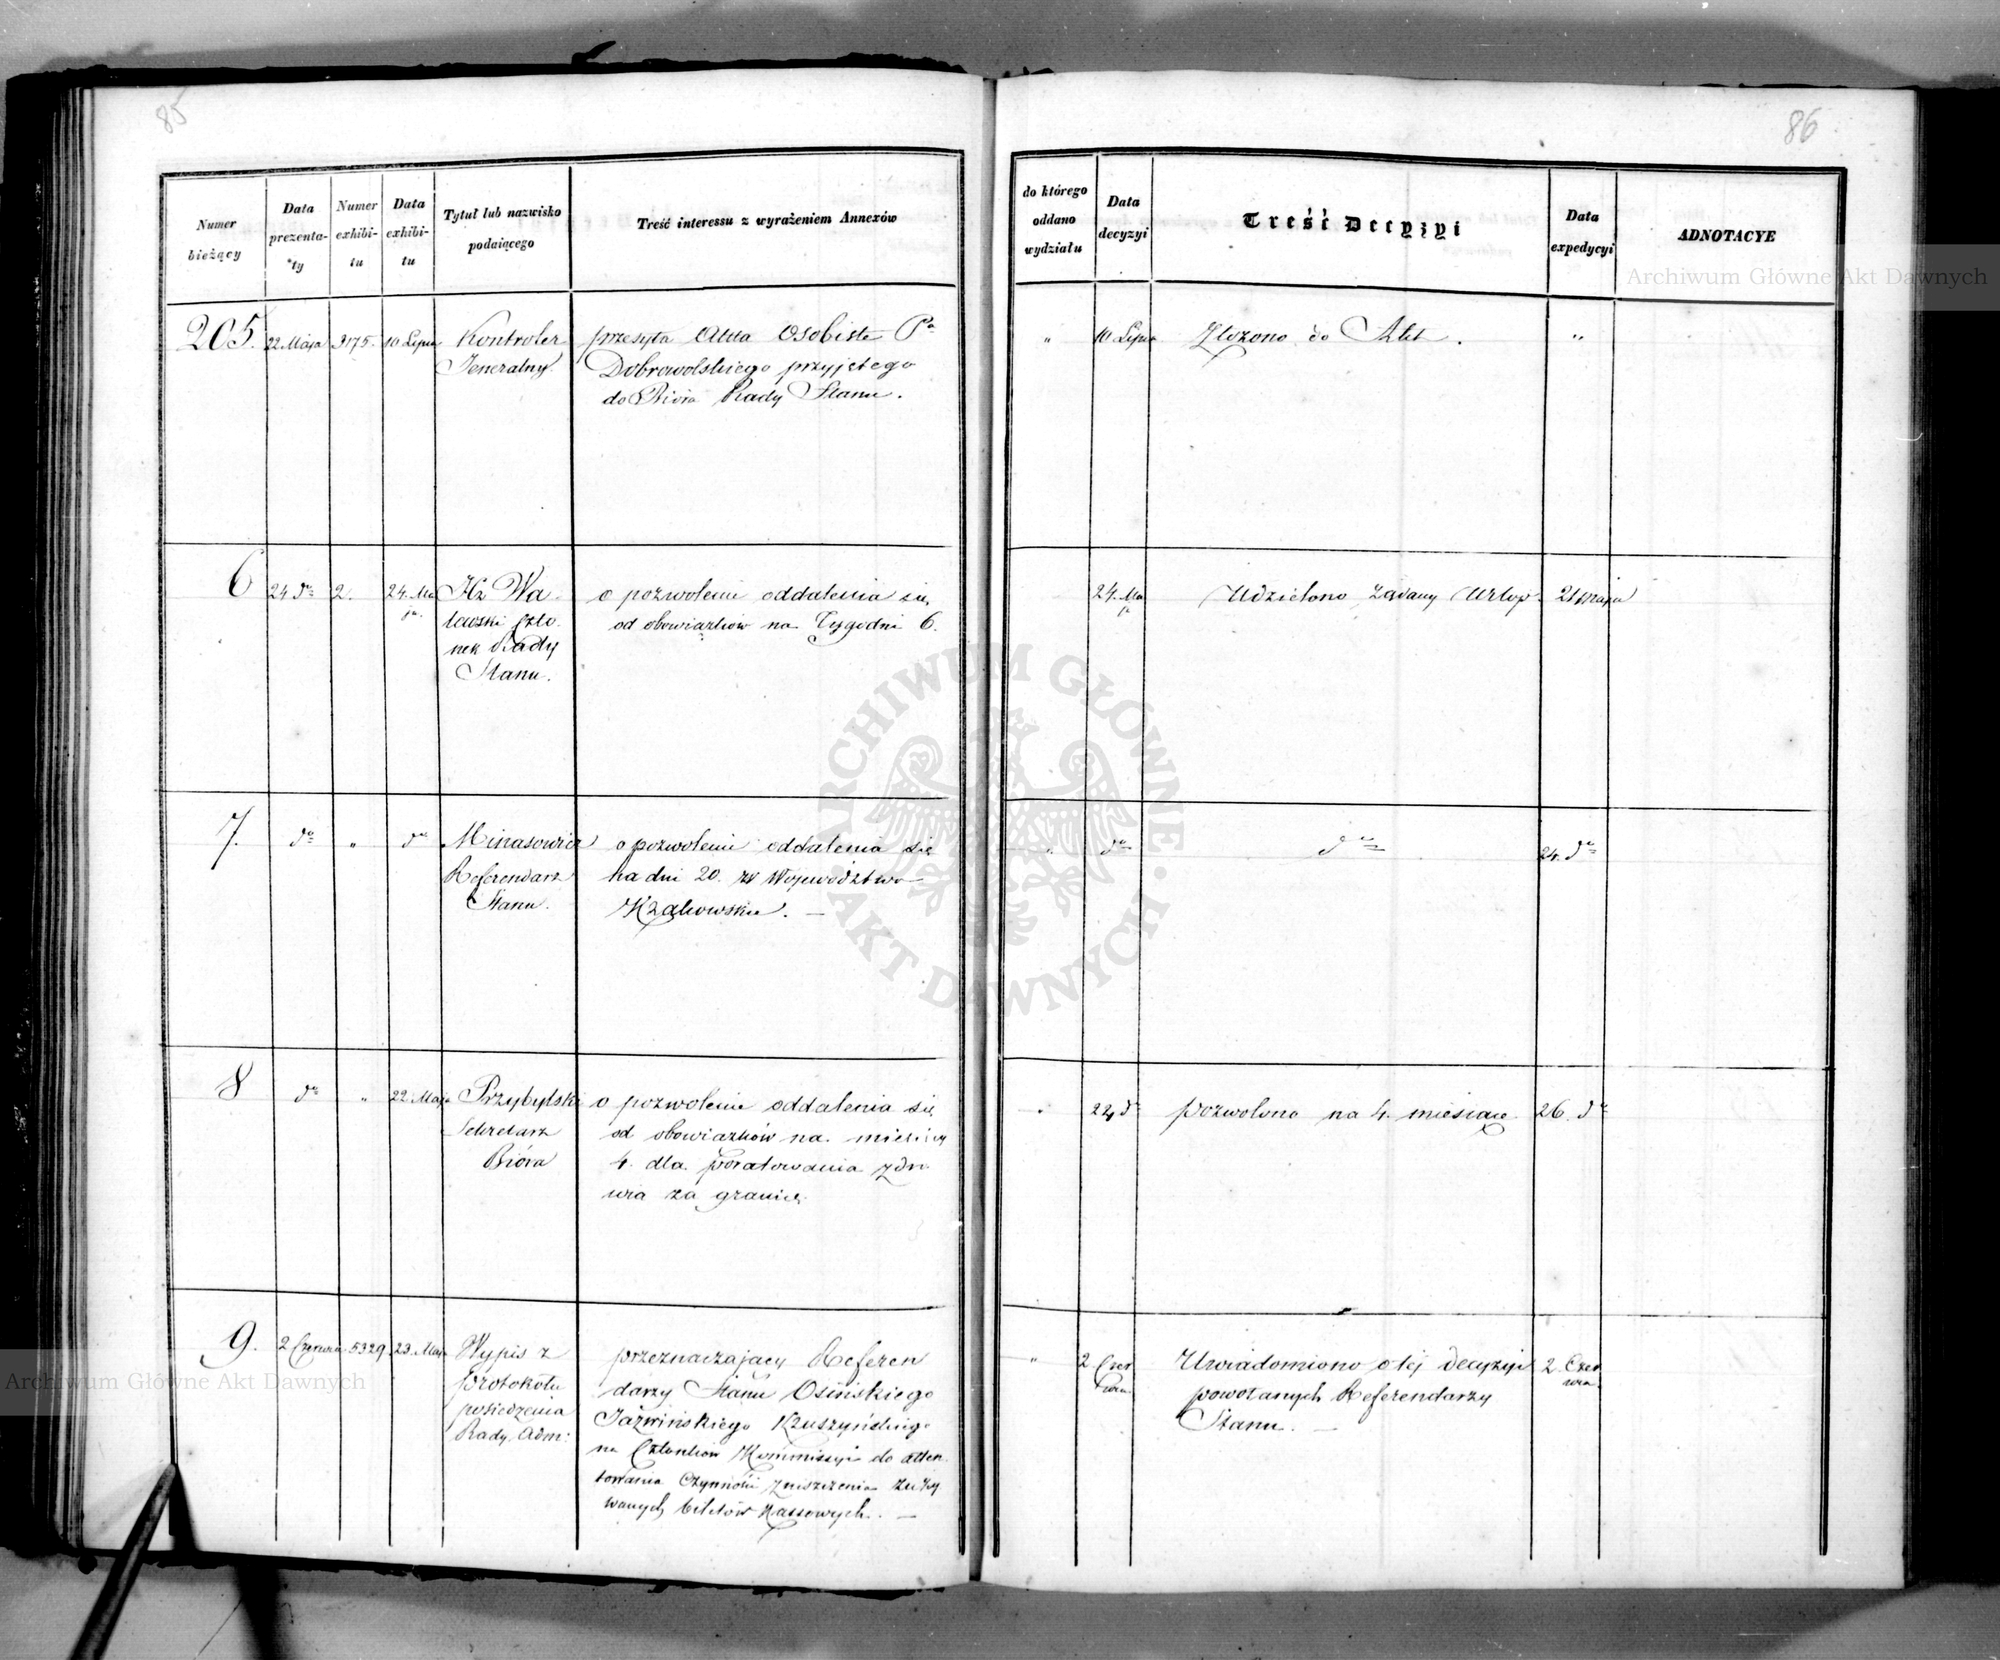 85
Numer bieżący
Data prezenta-ty
Numer exhibi-tu
Data exhibi-tu
Tytuł lub nazwisko podaiącego
Treść interessu z wyrażeniem Annexów
205.
22 Maja
3175.
10 Lipca
Kontroler
Jeneralny
przesyła Akta Osobiste Pa
Dobrowolskiego przyjętego
do Bióra Rady Stanu.
6
24 do
2.
24. Ma
ja.
Hr. Wa
lewski Czło
nek Rady
Stanu.
o pozwolenie oddalenia się
od obowiązków na Tygodni 6.
7.
do
"
do
Minasowicz
Referendarz
Stanu.
o pozwolenie oddalenia się
na dni 20. w Województwo
Krakowskie. —
8
do
"
22. Maja
Przybylski
Sekretarz
Bióra
o pozwolenie oddalenia się
od obowiązków na miesięcy
4. dla poratowania zdro
wia za granicę.
9.
2 Czerwca
5329.
23. Maja
Wypis z
protokołu
posiedzenia
Rady Adm:
przeznaczający Referen
darzy Stanu Osińskiego
Jaźwińskiego Kruszyńskiego
na Członków Kommissyi do atten
towania Czynności zniszczenia zuży
wanych biletów Kassowych. —
86
do którego oddano wydziału
Data decyzyi
Treść Decyzyi
Data expedycyi
ADNOTACYE
"
10 Lipca
Złożono do Akt.
"
24. Ma
ja
Udzielono żądany Urlop.
24 Maja
"
do
do
24. do
"
22 do
pozwolono na 4. miesiące
26. do
"
2. Czer
wca
Uwiadomiono o tej decyzyi
powołanych Referendarzy
Stanu. —
2. Czer
wca
Archiwum Główne Akt Dawnych
ARCHIWUM GŁÓWNE AKT DAWNYCH
Archiwum Główne Akt Dawnych